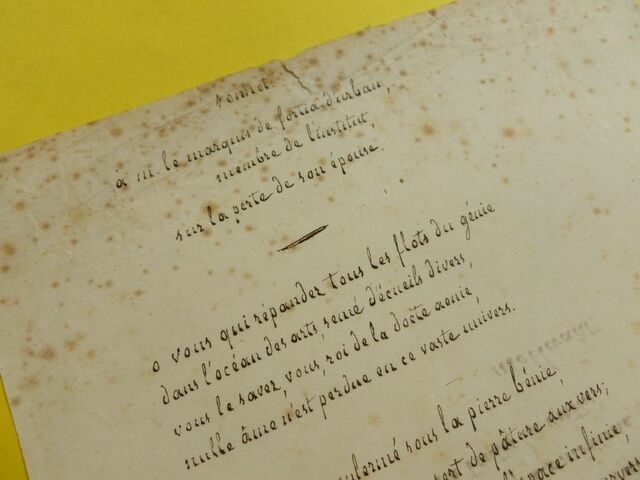 sonnet
à m. le marquis de fortia d'urban,
membre de l'institut,
sur la perte de son épouse.
o vous qui répandez tous les flots du génie
dans l'océan des arts, semé d'écueils divers,
vous le savez, vous, roi de la docte aonie,
nulle âme n'est perdue en ce vaste univers.
sous la pierre bénie,
sert de pâture aux vers;
l'espace infinie,